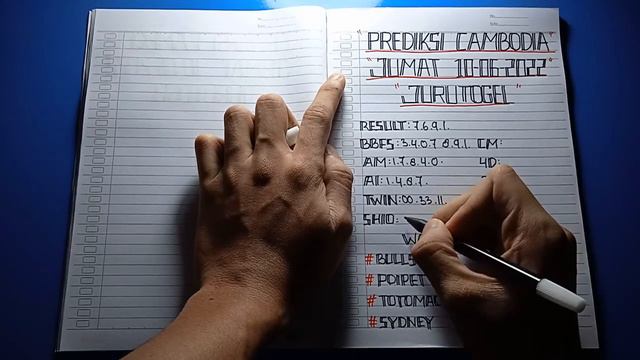 "PREDIKSI CAMBODIA"
"JUMAT 10-06-2022"
"JURUTOGEL"
RESULT: 7.6.9.1.
BBFS: 3.4.0.7.8.9.1. CM:
AM: 1.7.8.4.0. 4D:
AI: 1.4.8.7.
TWIN: 00.33.11.
SHIO:
#POIPET
#SYDNEY